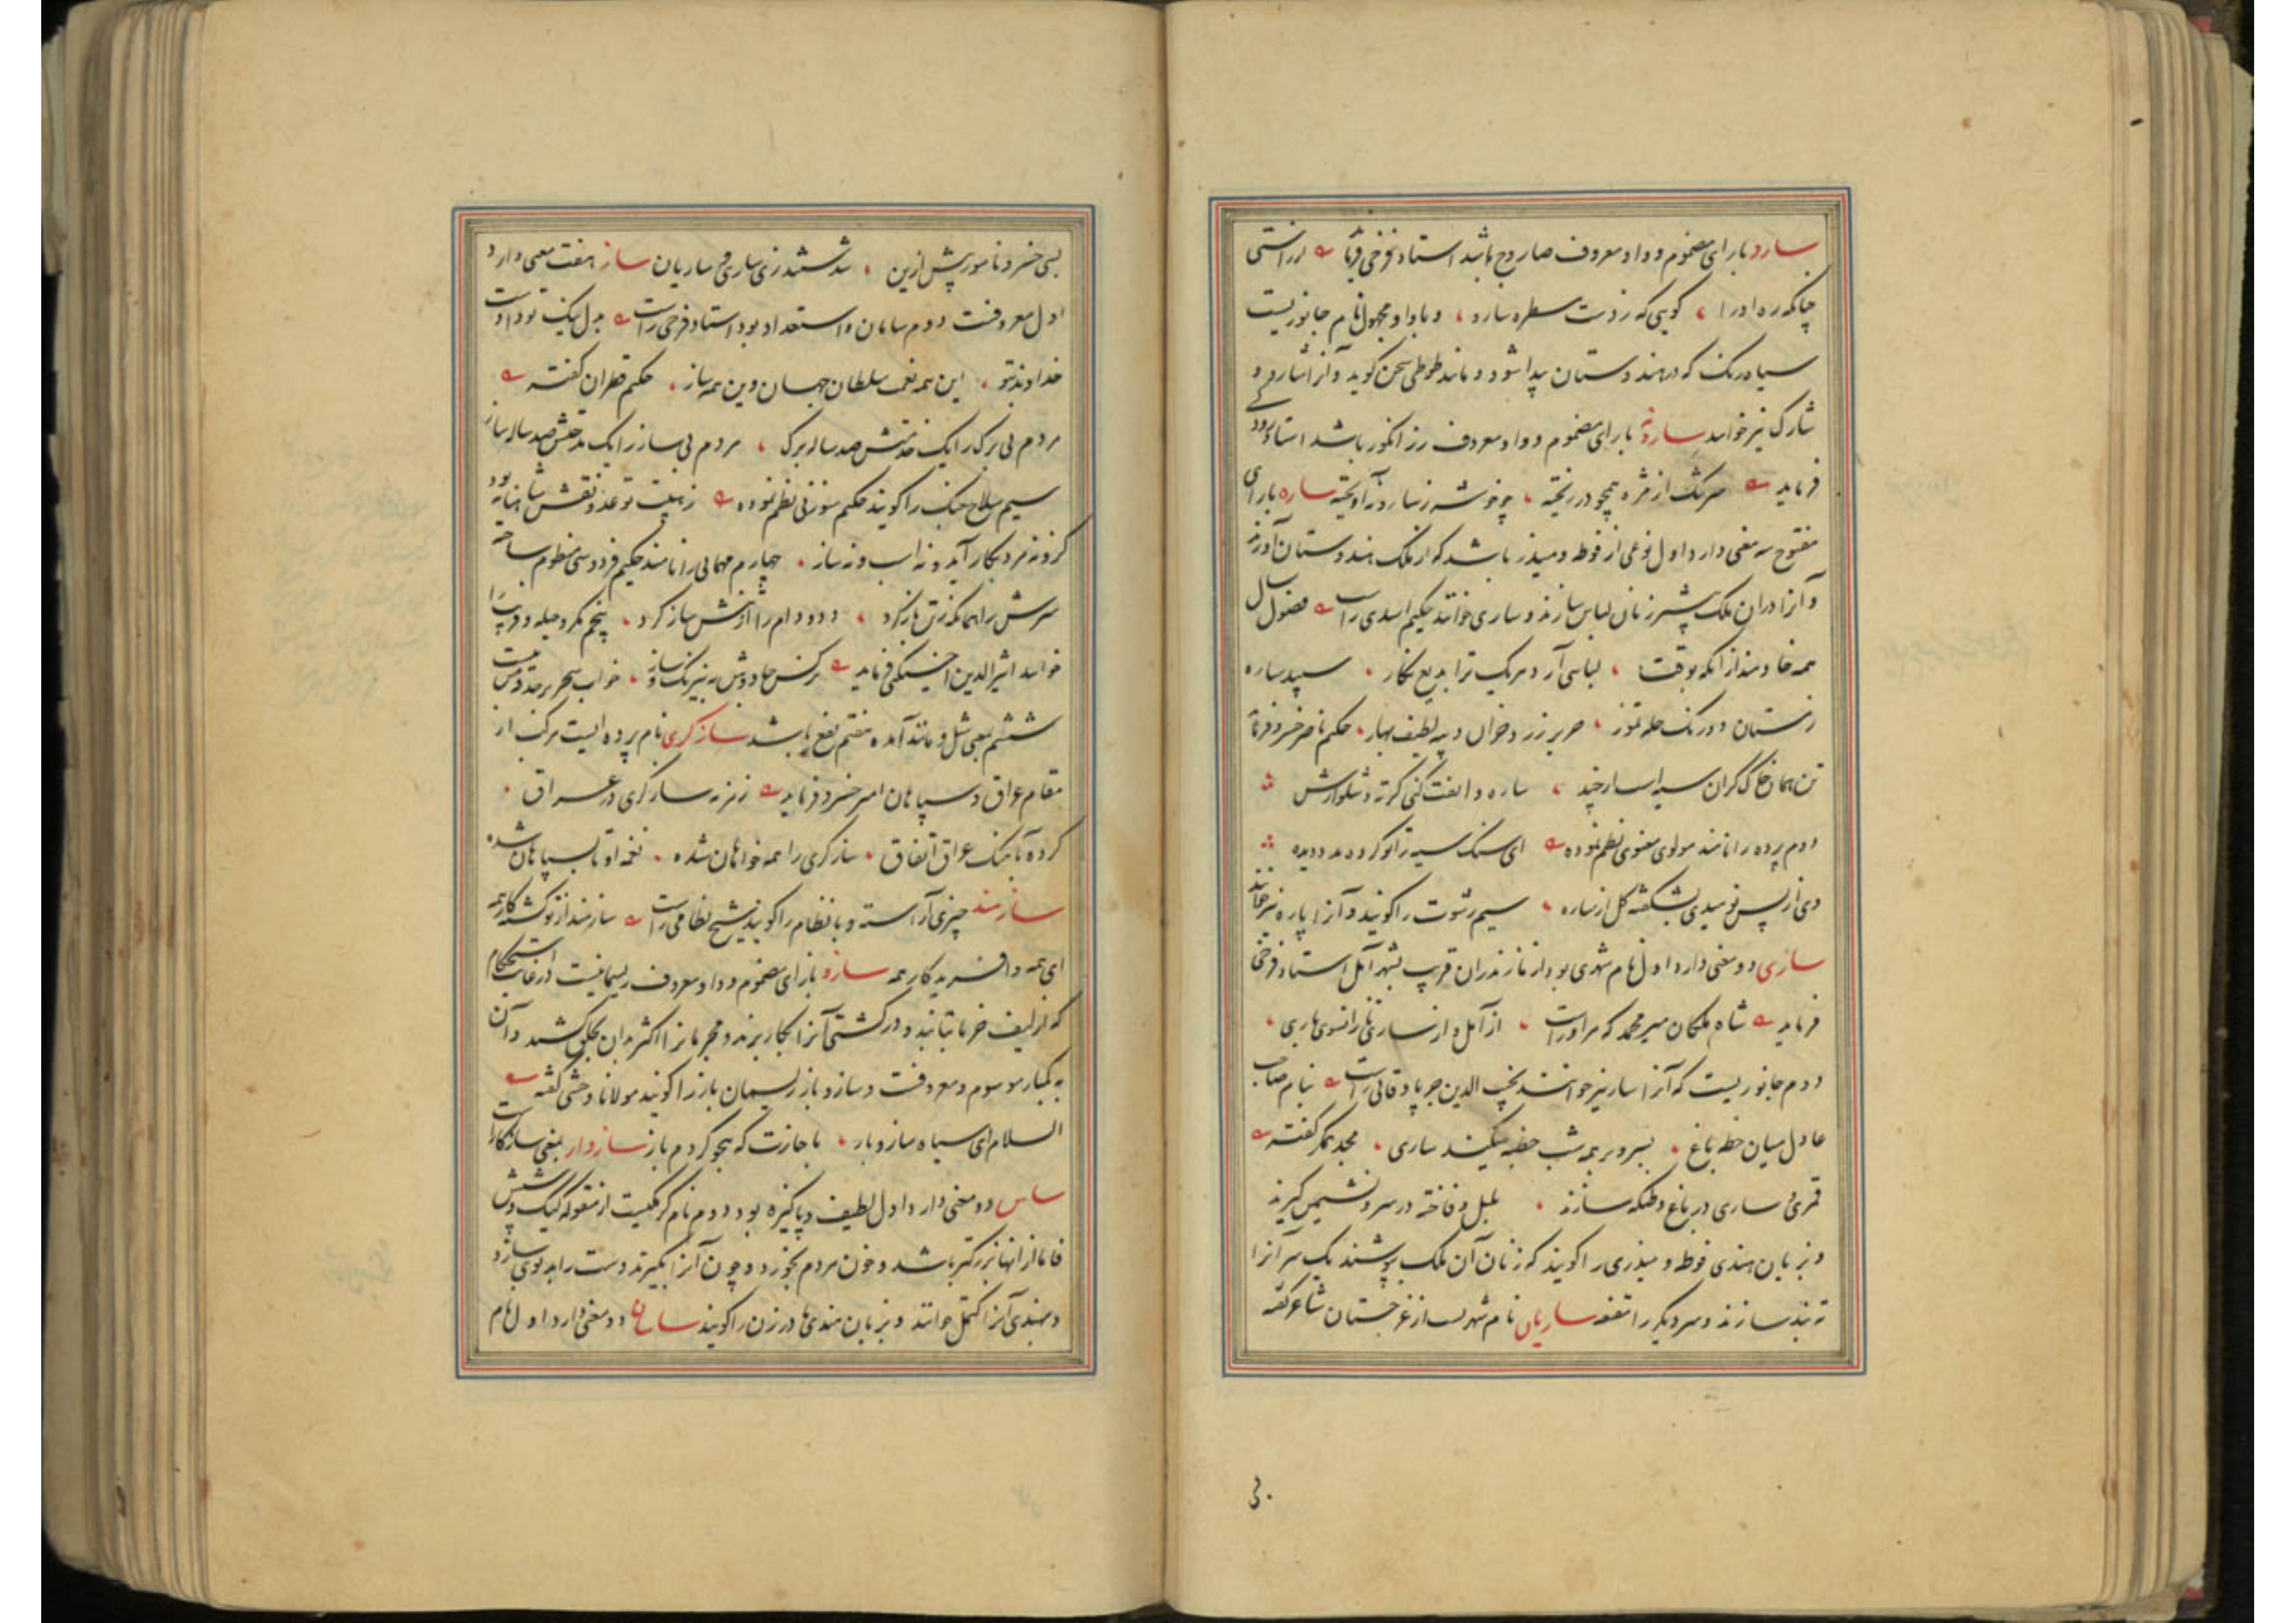 سارو با رای مضموم و واو معروف صاروج باشد استاد فرخی فرماید
چنانکه ره او را گویی که ز دست سطره سارو و با واو مجهول نام جانوریست
سیاه رنگ که در هندوستان پیدا شود و مانند طوطی سخن گوید و آنرا شارو و
شارک نیز خوانند سارونه با رای مضموم و واو معروف رز انگور باشد استاد رودکی
فرماید سرشک از مژه همچو در ریخته چو خوشه ز سارونه آویخته ساره با رای
مفتوح سه معنی دارد اول نوعی از فوطه و میزر باشد که از ملک هندوستان آورند
و آنرا در آن ملک بیشتر زنان لباس سازند و ساری خوانند حکیم اسدی راست فصول سال
همه خادمند از آنکه بوقت لباسی آرد هر یک ترا بدیع نگار سپید ساره
زمستان و و رنگ حله تموز حریر زرد خزان دیبه لطیف بهار حکیم ناصر خسرو فرماید
تن همان خاک گران سیه است ار چند ساره و الفت کنی کرته و شلوارش
دوم پرده را نامند مولوی معنوی نظم نموده ای سنگ سیه را تو کرده مدد دیده
وی از پس نومیدی بشکفته گل از ساره سیم رشوت را گویند و آنرا پاره نیز خوانند
ساری دو معنی دارد اول نام شهری بود از مازندران قریب بشهر آمل استاد فرخی
فرماید شاه ملکان میر محمد که مر او راست از آمل و از ساری تا زانسوی باری
دوم جانوریست که آنرا سار نیز خوانند نجیب الدین جرپادقانی راست بنام صاحب
عادل میان خطه باغ بسرو بر همه شب خطبه میکند ساری مجد همگر گفته
قمری و ساری در باغ وطنگه سازند بلبل و فاخته در سرو نشیمن گیرند
و بزبان هندی فوطه و میزری را گویند که زنان آن ملک پوشند یک سر آنرا
ته بند سازند و سر دیگر را مقنعه ساریان نام شهریست از غرجستان شاعر گفته
بسی خسرو نامور پیش ازین شد ستند زی ساری و ساریان ساز هفت معنی دارد
اول معروفست دوم سامان و استعداد بود استاد فرخی راست بدل نیک تو داده است
خداوند بتو این همه نعمت سلطان جهان وین همه ساز حکیم قطران گفته
مردم بی برگ را یک خدمتش صد ساله برگ مردم بی ساز را یک مدحتش صد ساله ساز
سیم سلاح جنگ را گویند حکیم سوزنی نظم نموده ز هیبت تو عدو نقش شاهنامه بود
کزو نه مرد بکار آید و نه اسب و نه ساز چهارم مهمانی را نامند حکیم فردوسی منظوم ساخته
سرش را همانگه ز تن باز کرد دد و دام را از تنش ساز کرد پنجم مکر و حیله و فریب را
خوانند اثیر الدین اخسیکتی فرماید نرگس جادووش به نیرنگ و ساز خواب سحر بر حدقه من ببست
ششم بمعنی مثل و مانند آمده هفتم نفع باشد سازگری نام پرده ایست مرکب از
مقام عراق و سپاهان امیر خسرو فرماید زمزمه سازگری در عراق
کرده بآهنگ عراق اتفاق سازگری را همه خواهان شده نغمه او تا بسپاهان شده
سازمند چیزی آراسته و با نظام را گویند شیخ نظامی راست سازمند از تو گشته کار همه
ای همه و آفریدگار همه سازو با زای مضموم و واو معروف ریسمانیست در غایت استحکام
که از لیف خرما بتابند و در کشتی آنرا بکار برند و مجرمانرا اکثر بدان بحلق کشند و آن
به کمبار موسوم و معروفست و سازو باز ریسمان باز را گویند مولانا وحشی گفته
السلام ای سیاه سازو باز با جازت که هجو کردم باز سازوار بمعنی سازگار است
ساس دو معنی دارد اول لطیف و پاکیزه بود دوم نام کرمکیست از مقوله کیک و شپش
فاما از آنها بزرگتر باشد و خون مردم بخورد و چون آنرا بگیرند دست را بدبوی سازد
و بهندی آنرا کتمل خوانند و بزبان هندی مادر زن را گویند ساسان دو معنی دارد اول نام